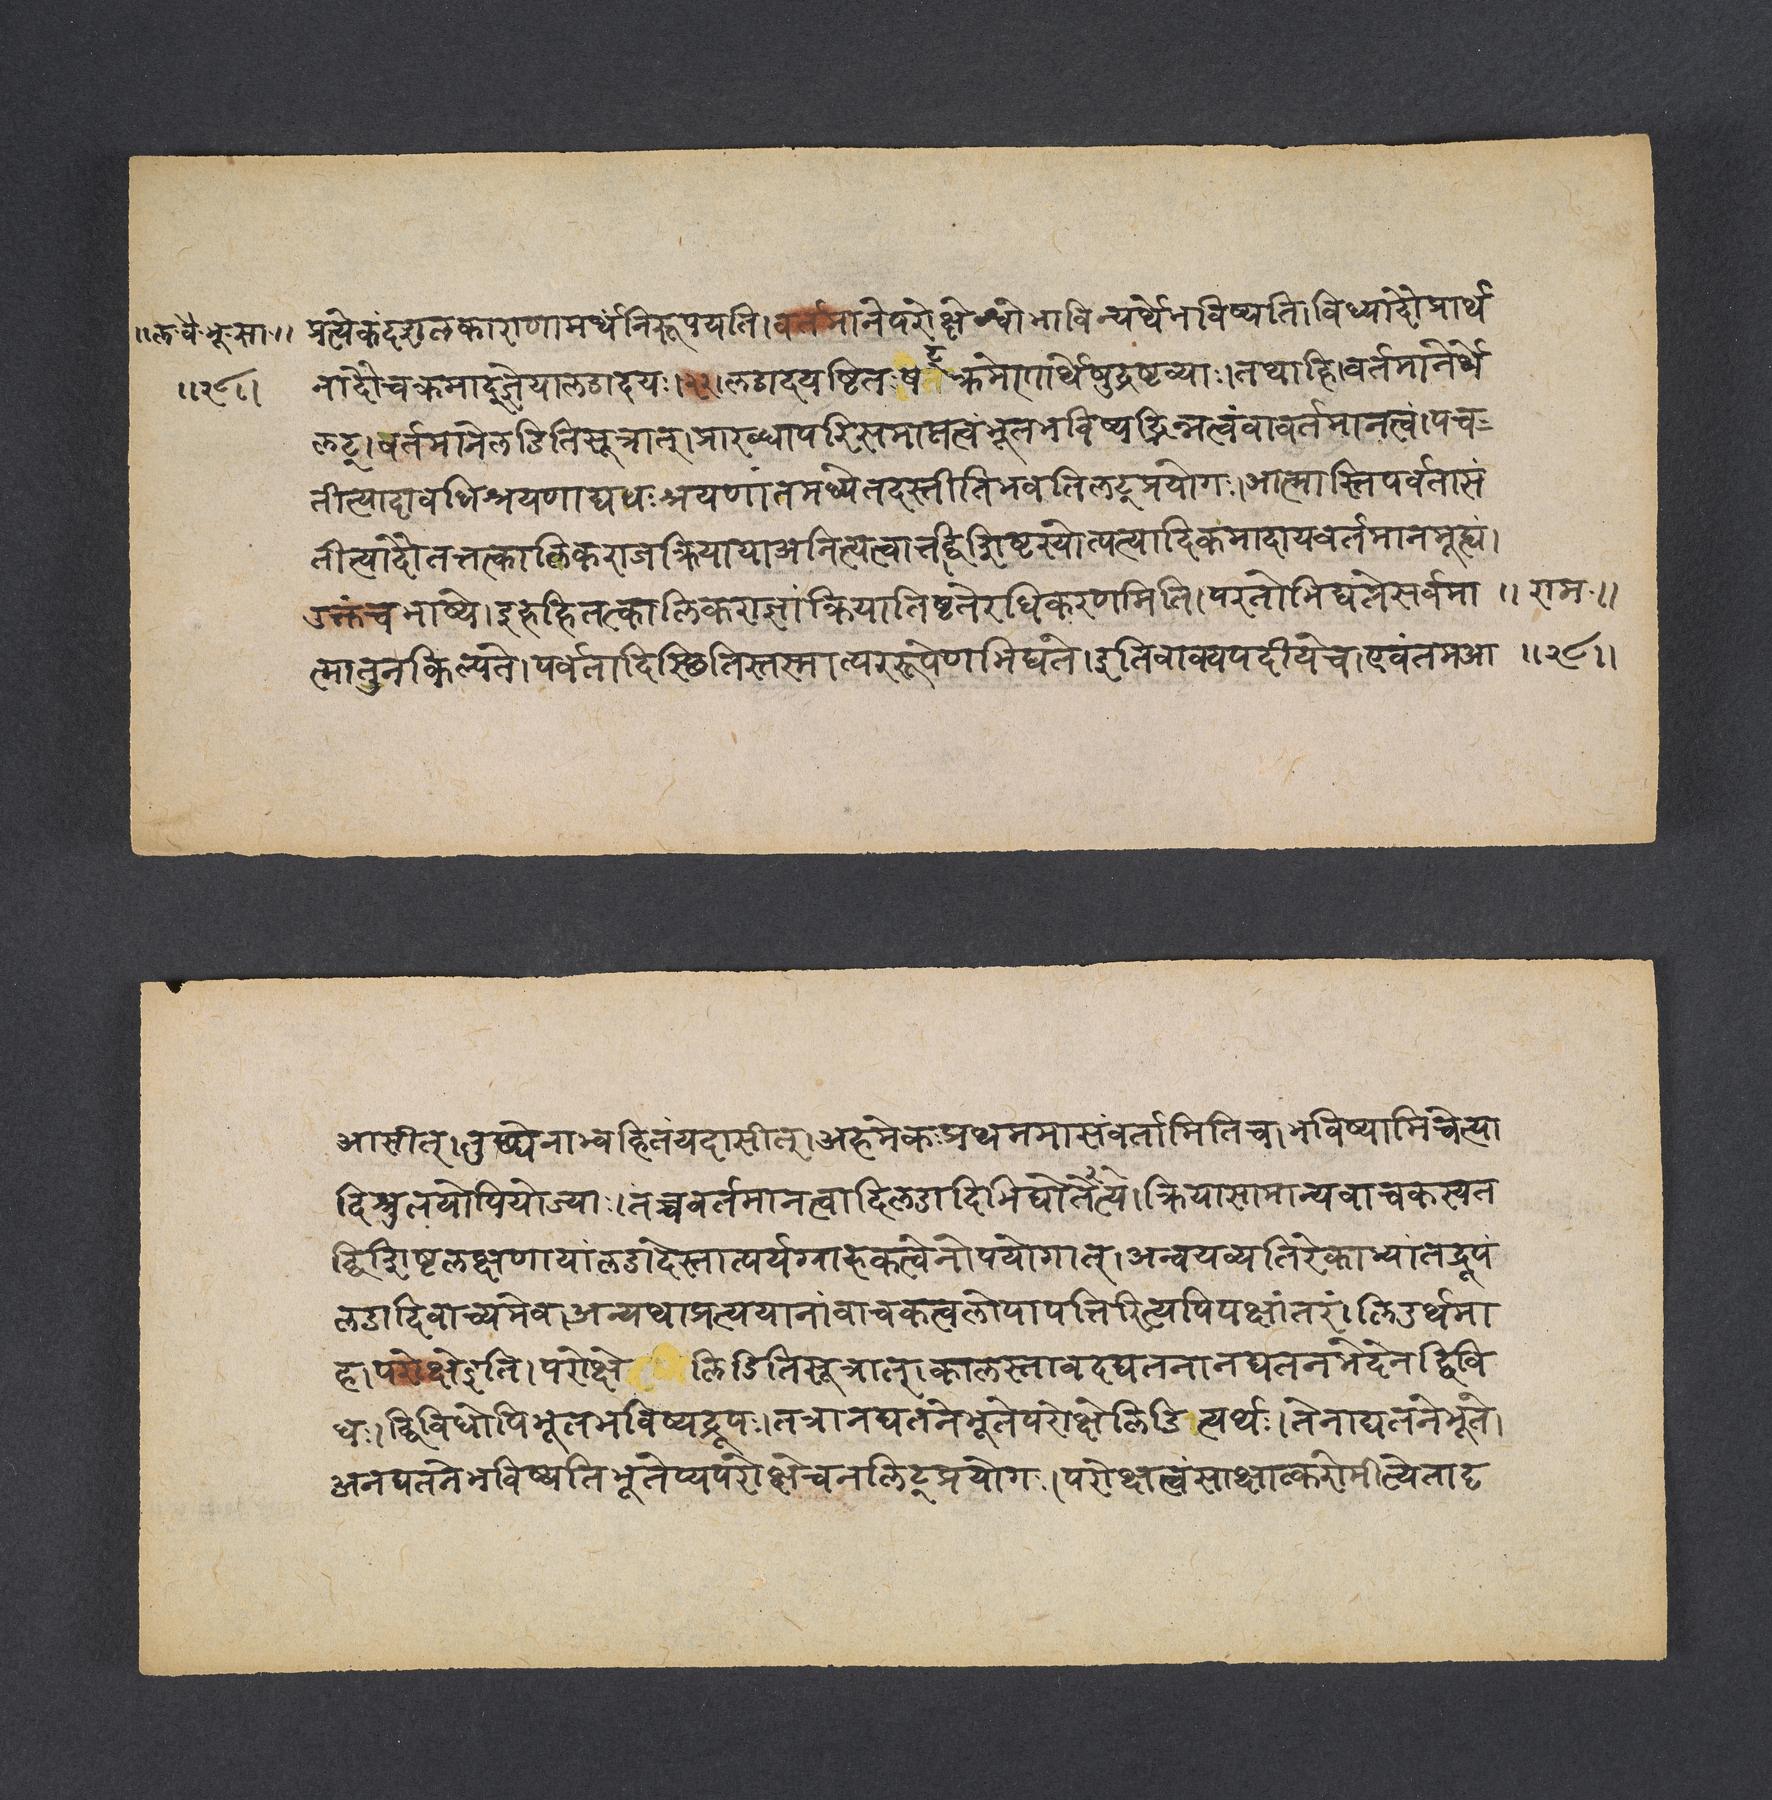 ॥ल॰वै॰भू॰सा॰॥ प्रत्येकंदशलकाराणामर्थंनिरूपयति।वर्तमानेपरोक्षेश्वोभाविन्यर्थेभविष्यति।विध्यादौप्रार्थ
॥२९। नादौचक्रमाद्ज्ञेयालडादयः।२२।लडादयष्टितःषट्क्रमेणार्थेषुद्रष्टव्याः।तथाहि।वर्तमानेर्थे
लट्।वर्तमानेलडितिसूत्रात्।प्रारब्धापरिसमाप्तत्वंभूतभविष्यद्भिन्नत्वंवावर्तमानत्वं।पच-
तीत्यादावधिश्रयणाद्यधःश्रयणांतमध्येतदस्तीतिभवतिलट्प्रयोगः।आत्मास्तिपर्वतासं
तीत्यादौतत्तत्कालिकराजक्रियायाअनित्यत्वात्तद्विशिष्टस्योत्पत्यादिकमादायवर्तमानमूह्यं।
उक्तंचभाष्ये।इहहितत्कालिकराज्ञांक्रियातिष्ठतेरधिकरणमिति।परतोभिद्यतेसर्वमा ॥ रामः॥
त्मातुनविकल्पते।पर्वतादिस्थितिस्तस्मात्पररूपेणभिद्यते।इतिवाक्यपदीयेच।एवंतमआ ॥२९॥
आसीत्।तुछ्येनाभ्वहितंयदासीत्।अहमेकःप्रथममासंवर्तामितिच।भविष्यामिचेत्या
दिश्रुतयोपियोज्याः।तच्चवर्तमानत्वादिलडादिभिर्द्योत्यते।क्रियासामान्यवाचकस्यत
द्विशिष्टलक्षणायांलडादेस्तात्पर्यग्राहकत्वेनोपयोगात्।अन्वयव्यतिरेकाभ्यांतद्रूपं
लडादिवाच्यमेव।अन्यथाप्रत्ययानांवाचकत्वलोपापत्तिरित्यपिपक्षांतरं।लिडर्थमा
ह।परोक्षेइति।परोक्षे लिडितिसूत्रात्।कालस्तावदद्यतनानद्यतनभेदेनद्विवि
धः।द्विविधोपिभूतभविष्यद्रूपः।तत्रानद्यतनेभूतेपरोक्षेलिडित्यर्थः।तेनाद्यतनेभूते।
अनद्यतनेभविष्यतिभूतेप्यपरोक्षेचनलिट्प्रयोगः।परोक्षत्वंसाक्षात्करोमीत्येतादृ